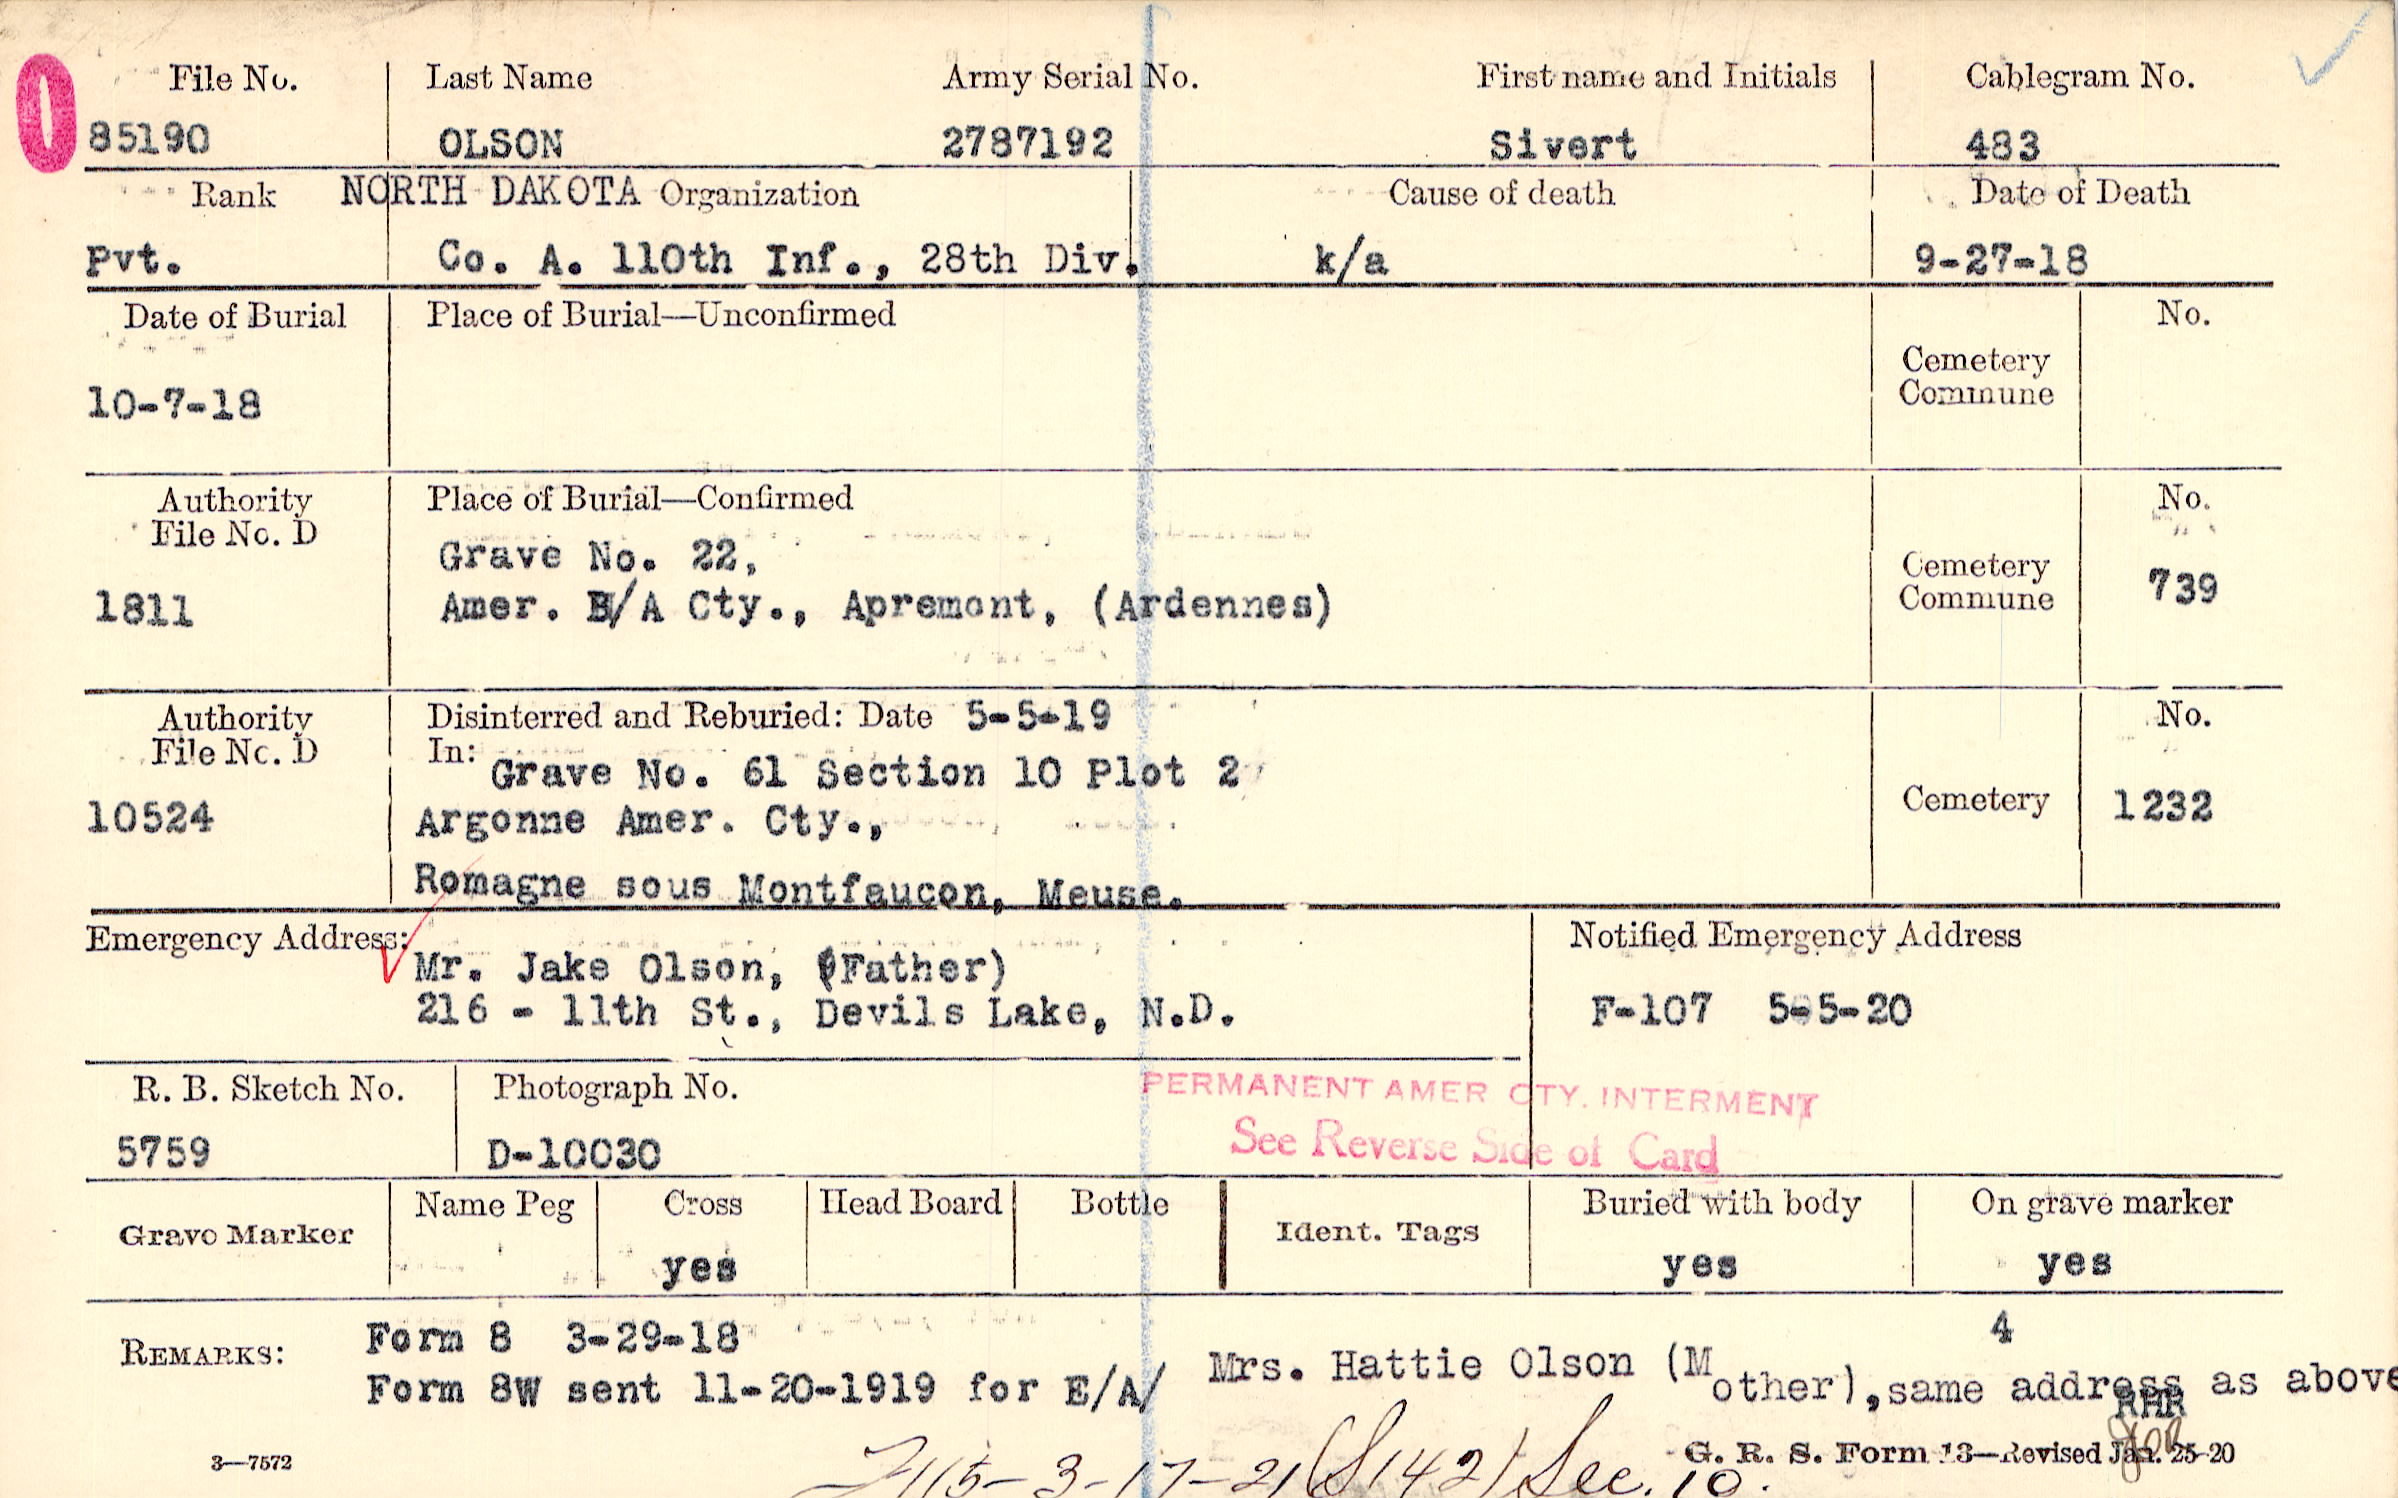 File No. Last Name Army Serial No. First name and Initials Cablegram No.
85190 OLSON 2787192 Sivert 483
Rank NORTH DAKOTA Organization Cause of death Date of Death
Pvt. Co. A. 110th Inf., 28th Div. k/a 9-27-18
Date of Burial Place of Burial—Unconfirmed No.
Cemetery
Commune
10-7-18
Authority Place of Burial—Confirmed No.
File No. D
Grave No. 22,
Cemetery
Commune
1811 Amer. B/A Cty., Apremont, (Ardennes) 739
Authority Disinterred and Reburied: Date 5-5-19 No.
File No. D In:
Grave No. 61 Section 10 Plot 2
10524 Argonne Amer. Cty., Cemetery 1232
Romagne sous Montfaucon, Meuse.
Emergency Address: Notified Emergency Address
Mr. Jake Olson, (Father)
216 - 11th St., Devils Lake, N.D. F-107 5-5-20
R. B. Sketch No. Photograph No. PERMANENT AMER CTY. INTERMENT
5759 D-10030 See Reverse Side of Card
Grave Marker Name Peg Cross Head Board Bottle Ident. Tags Buried with body On grave marker
yes yes yes
REMARKS: Form 8 3-29-18 4
Form 8W sent 11-20-1919 for E/A/ Mrs. Hattie Olson (Mother), same address as above
RHR
3—7572 G. R. S. Form 13—Revised Jan. 25-20
115-3-17-21 (S142) Sec. 10.